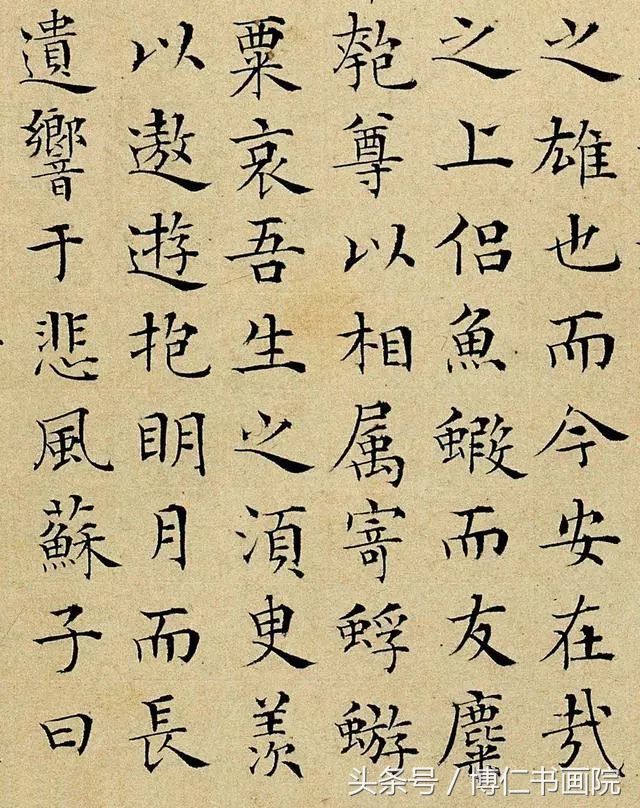 之雄也而今安在哉
之上侶魚蝦而友麋
匏尊以相属寄蜉蝣
粟哀吾生之須臾羡
以遨遊抱明月而長
遺響于悲風蘇子曰
头条号 / 博仁书画院